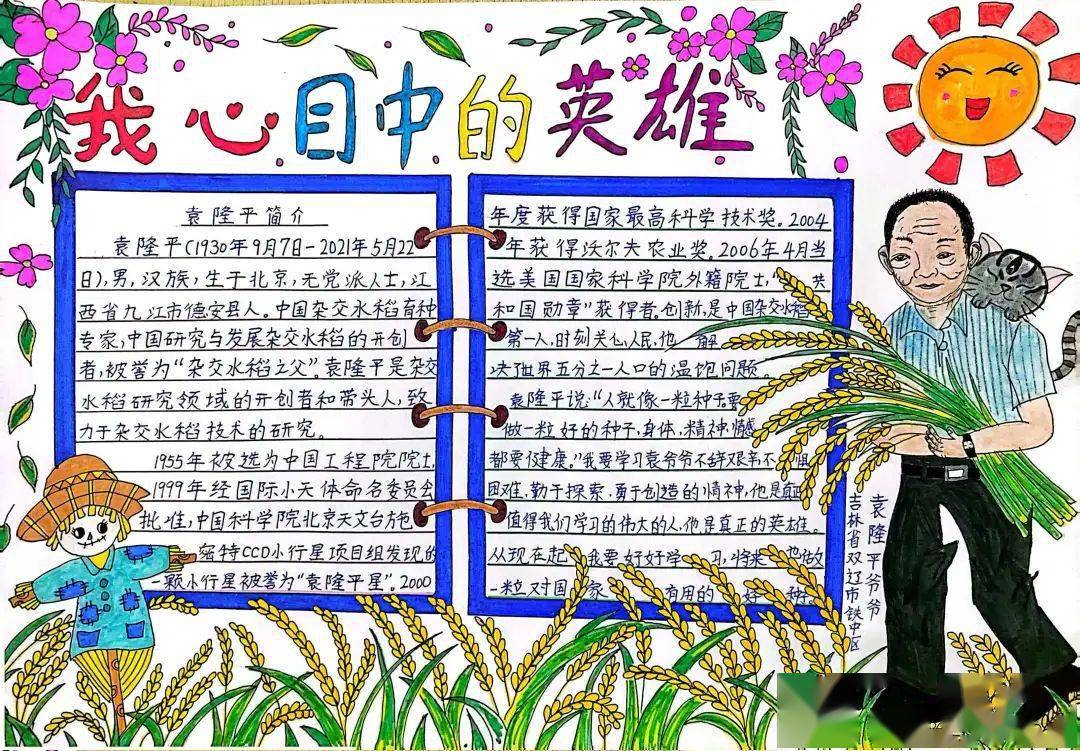 我心目中的英雄
袁隆平简介
袁隆平(1930年9月7日-2021年5月22
日),男,汉族,生于北京,无党派人士,江
西省九江市德安县人。中国杂交水稻育种
专家,中国研究与发展杂交水稻的开创
者,被誉为“杂交水稻之父”。袁隆平是杂交
水稻研究领域的开创者和带头人,致
力于杂交水稻技术的研究。
1955年被选为中国工程院院士,
1999年经国际小天体命名委员会
批准,中国科学院北京天文台施密
特CCD小行星项目组发现的
一颗小行星被誉为“袁隆平星”。2000
年度获得国家最高科学技术奖。2004
年获得沃尔夫农业奖。2006年4月当
选美国国家科学院外籍院士,“共
和国勋章”获得者。创新,是中国杂交水稻
第一人,时刻关心人民,他一解
决世界五分之一人口的温饱问题。
袁隆平说:“人就像一粒种子要
做一粒好的种子,身体,精神,情感
都要健康。”我要学习袁爷爷不辞艰辛不
困难,勤于探索,勇于创造的精神,他是真正
值得我们学习的伟大的人,他是真正的英雄。
从现在起,我要好好学习,将来也做
一粒对国家有用的好种子。
袁隆平爷爷
吉林省双辽市铁中区